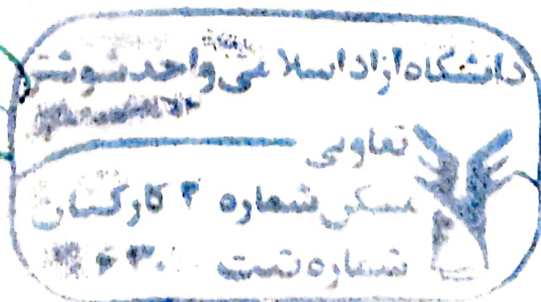 دانشگاه آزاد اسلامی واحد شوشتر
تعاونی
مسکن شماره ۲ کارکنان
شماره ثبت